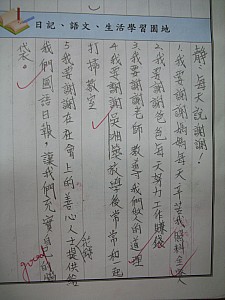 日記、語文、生活學習園地
靜、每天說謝謝!
1.我要謝謝媽媽每天辛苦我
2.我要謝謝爸爸每天努力工作賺錢
3.我要謝謝老師教導我們做人的道理
4.我要謝謝 放學後常常和
打掃教室
5.我要謝謝在社會上的善心人士提供給
我們國語日報,讓我們充實自
good